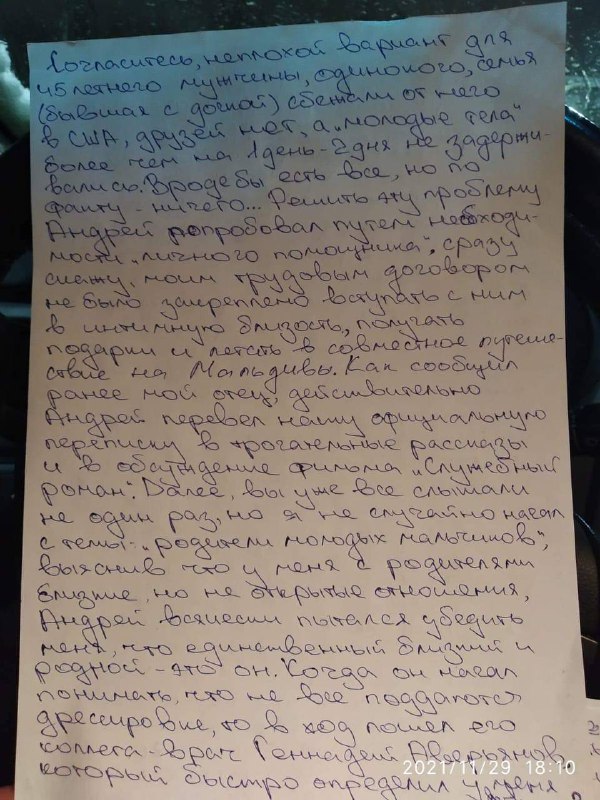 Согласитесь, неплохой вариант для
45 летнего мужчины, одинокого, семья
(бывшая с дочкой) сбежали от него
в США, друзей нет, а „молодые тела"
более чем на 1день-2дня не задержи-
вались. Вроде бы есть все, но по
факту - ничего... Решить эту проблему
Андрей попробовал путем необходи-
мости „личного помощника", сразу
скажу, моим трудовым договором
не было закреплено вступать с ним
в интимную близость, получать
подарки и лететь в совместное путеше-
ствие на Мальдивы. Как сообщил
ранее мой отец, действительно
Андрей перевел нашу официальную
переписку в трогательные рассказы
и в обсуждение фильма „Служебный
роман". Далее, вы уже все слышали
не один раз, но я не случайно начал
с темы „родители молодых мальчиков",
выяснив что у меня с родителями
близкие, но не открытые отношения,
Андрей всячески пытался убедить
меня, что единственный близкий и
родной - это он. Когда он начал
понимать, что не все поддаются
дрессировке, то в ход пошел его
коллега - врач Геннадий Аверьянов,
который быстро определил у меня
2021/11/29 18:10